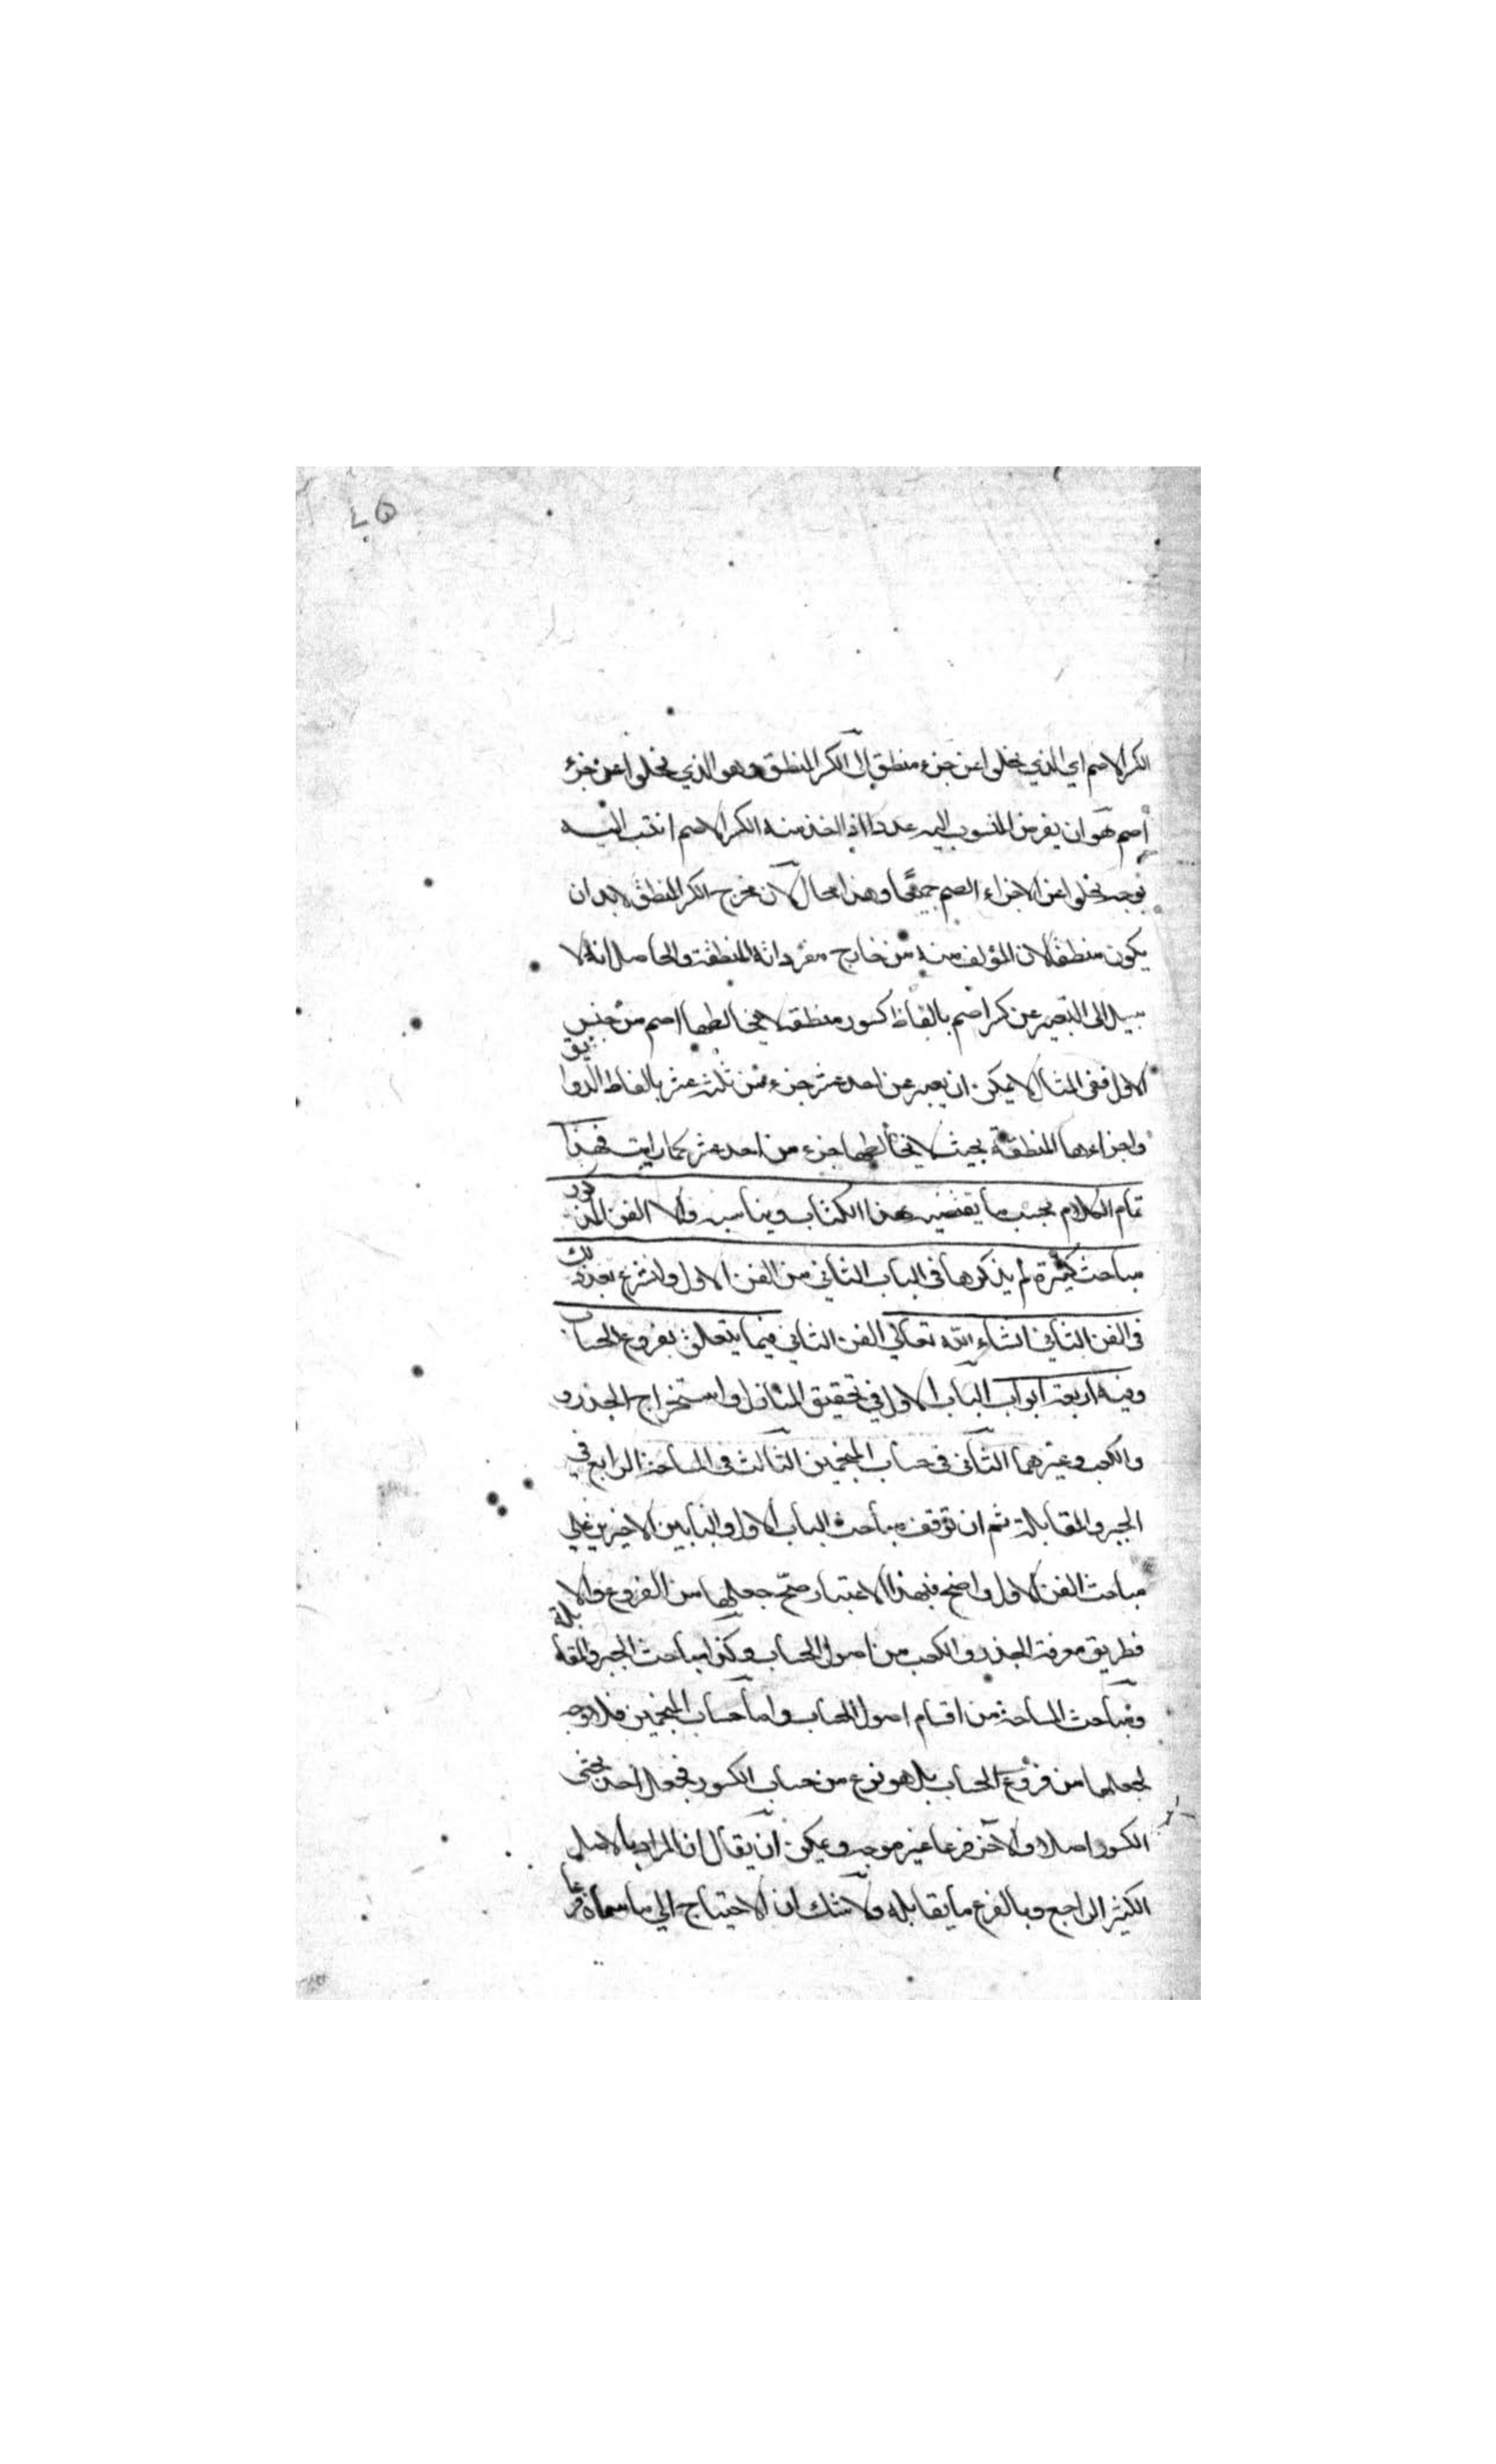 ٤٥
الكسر الاصم اي الذي يخلوا عن جزء منطق الى الكسر المنطق وهو الذي يخلوا عن جزء
اصم هو ان يفرض المنسوب اليه عددا اذا اخذ منه الكسر الاصم انتسب اليه
بوجه يخلوا عن الاجزاء الصم جميعًا وهذا محال لان مخرج الكسر المنطق لا بد ان
يكون منطقا لان المؤلف منه من مخارج مفرداته المنطقة والحاصل انه لا
سبيل الى التعبير عن كسر اصم بالفاظ كسور منطقة لا يخالطها اصم من جنس
الاول ففي المثال لا يمكن ان يعبر عن احد عشر جزء من ثلثة عشر بالفاظ الدوانيق
واجزاءها المنطقة بحيث لا يخالطها جزء من احد عشر كما رايت فهذا
تمام الكلام بحسب ما يقتضيه هذا الكتاب ويناسبه والا الفن المذكور
مباحث كثيرة لم يذكرها في الباب الثاني من الفن الاول ولنشرع بعد ذلك
في الفن الثاني انشاء الله تعالى الفن الثاني فيما يتعلق بفروع الحساب
وفيه اربعة ابواب الباب الاول في تحقيق المنازل واستخراج الجذر و
والكعب وغيرهما الثاني في حساب المنجمين الثالث في المساحة الرابع في
الجبر والمقابلة ثم ان توقف مباحث الباب الاول والبابين الاخيرين على
مباحث الفن الاول واضح فبهذا الاعتبار صح جعلها من الفروع والا
فطريق معرفة الجذر والكعب من اصول الحساب وكذا مباحث الجبر والمقابلة
ومباحث المساحة من اقسام اصول الحساب واما حساب المنجمين فلا وجه
لجعلها من فروع الحساب بل هو نوع من حساب الكسور فجعل احد بحثي
الكسور اصلا والآخر فرعا غير موجه ويمكن ان يقال ان المراد بالاصل
الكثير الراجع وبالفرع ما يقابله ولا شك ان الاحتياج الى ما سماه فرعا